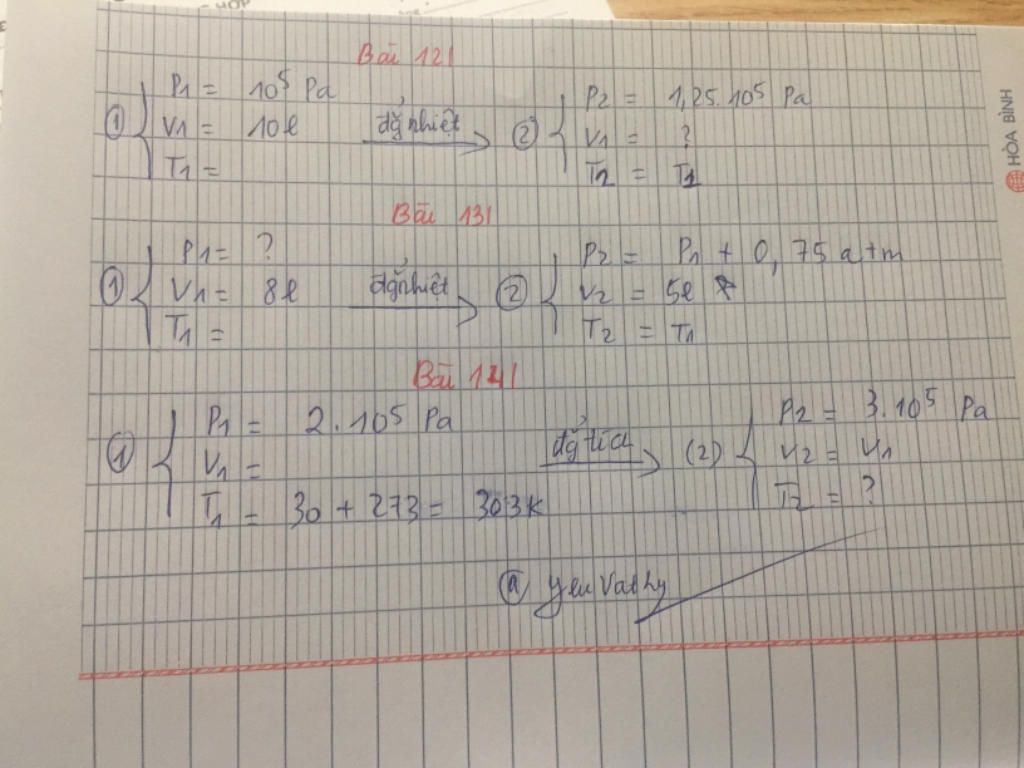 Bài 12/
① P1 = 10⁵ Pa
V1 = 10l
T1 =
đẳg nhiệt
② P2 = 1,25.10⁵ Pa
V1 = ?
T2 = T1
Bài 13/
① P1 = ?
V1 = 8l
T1 =
đẳg nhiệt
② P2 = P1 + 0,75 atm
V2 = 5l
T2 = T1
Bài 14/
① P1 = 2.10⁵ Pa
V1 =
T1 = 30 + 273 = 303K
đẳg tích
(2) P2 = 3.10⁵ Pa
V2 = V1
T2 = ?
HÒA BÌNH